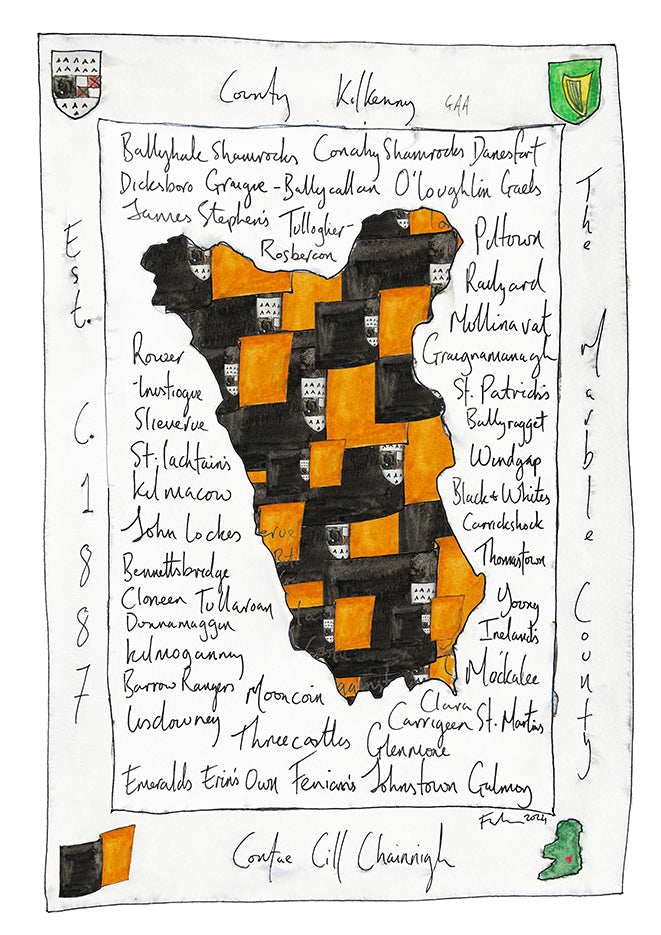 County Kilkenny GAA
Ballyhale Shamrocks Conahy Shamrocks Danesfort
Dicksboro Graigue-Ballycallan O'loughlin Gaels
James Stephen's Tullogher-
Rosbercon
Piltown
Railyard
Mullinavat
Graignamanagh
St. Patrick's
Ballyragget
Windgap
Black & Whites
Carrickshock
Thomastown
Young
Ireland's
Mockalee
Rower
-Inistiogue
Slieverue
St. lachtain's
Kilmacow
John Lockes
Bennettsbridge
Cloneen Tullaroan
Dunnamaggin
Kilmoganny
Barrow Rangers Mooncoin
Lisdowney
Clara
Carrigeen St. Martins
Threecastles Glenmore
Emeralds Erin's Own Fenian's Johnstown Galmoy
2024
Est. C. 1887
The Marble County
Contae Cill Chainnigh